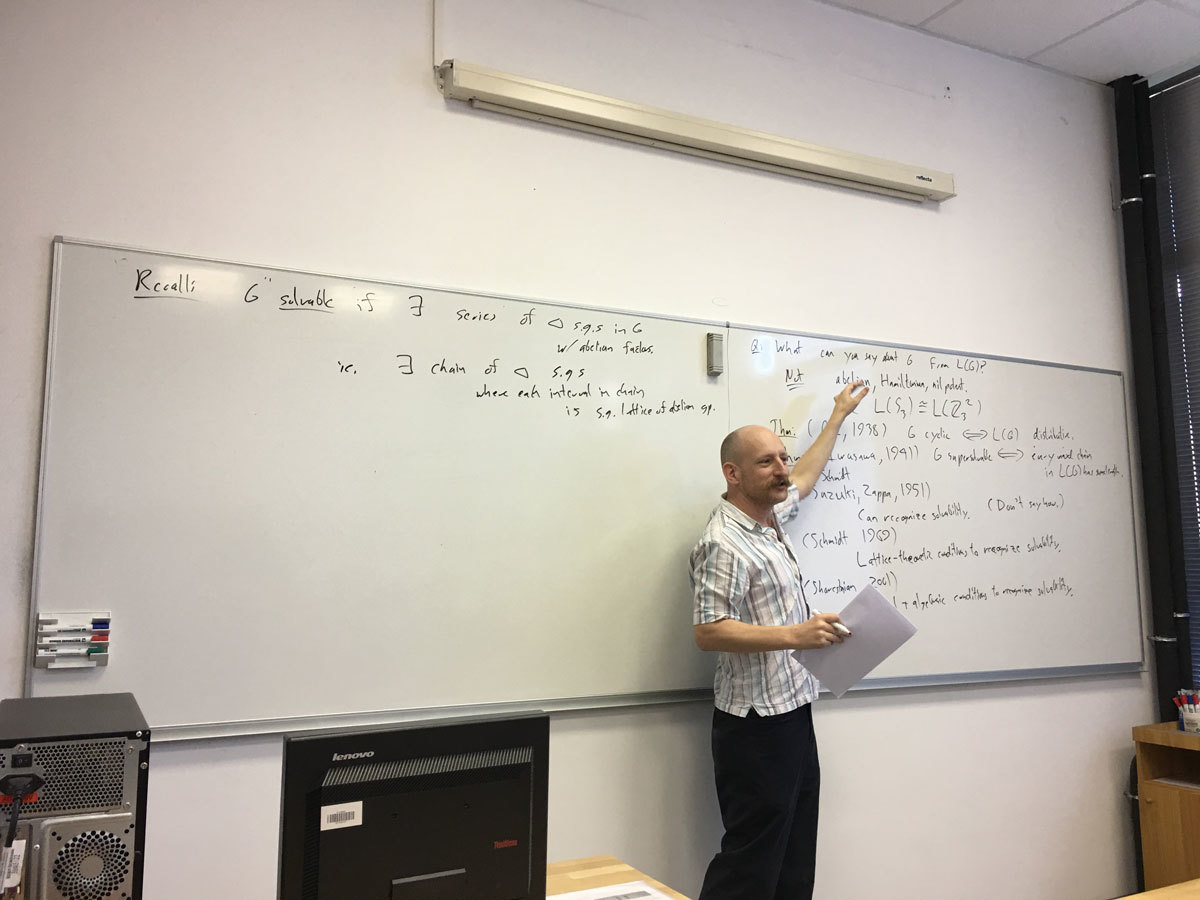 reflecta
Recall: G solvable if ∃ series of ◁ s.g.s in G
w/ abelian factors.
i.e. ∃ chain of ◁ s.g.s
where each interval in chain
is s.g. lattice of abelian gp.
Q: What can you say about G from L(G)?
Not abelian, Hamiltonian, nilpotent.
L(S₃) ≅ L(ℤ₃²)
Thm: , 1938) G cyclic ⟺ L(G) distributive.
, 1941) G supersolvable ⟺ every max'l chain
in L(G) has same length.
Schmidt
Suzuki, Zappa, 1951)
Can recognize solvability. (Don't say how.)
(Schmidt 1969)
Lattice-theoretic conditions to recognize solvability.
(Shareshian 2001)
+ algebraic conditions to recognize solvability.
lenovo
ThinkVision